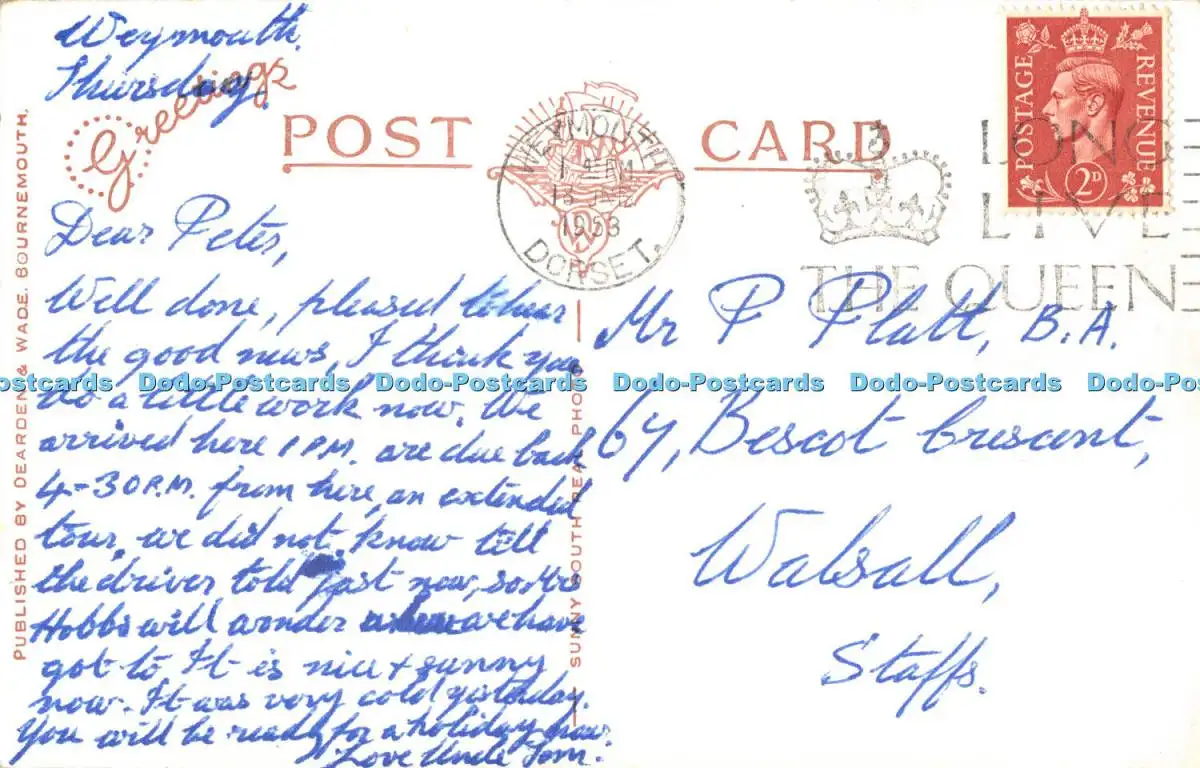 Weymouth.
Thursday.
Greetings
POST CARD
WEYMOUTH
1953
DORSET.
LONG
LIVE
THE QUEEN
POSTAGE REVENUE
2D
PUBLISHED BY DEARDEN & WADE. BOURNEMOUTH.
Dear Peter,
Well done, pleased to hear
the good news, I think you
do a little work now. We
arrived here 1 P.M. are due back
4-30 P.M. from here, an extended
tour, we did not know till
the driver told just now, so Mrs
Hobbs will wonder where we have
got to It is nice + sunny
now. It was very cold yesterday.
You will be ready for a holiday now.
Love Uncle Tom.
SUNNY SOUTH REAL PHOTO
Mr P Platt, B.A.
67, Bescot Crescent,
Walsall,
Staffs.
Dodo-Postcards Dodo-Postcards Dodo-Postcards Dodo-Postcards Dodo-Postcards